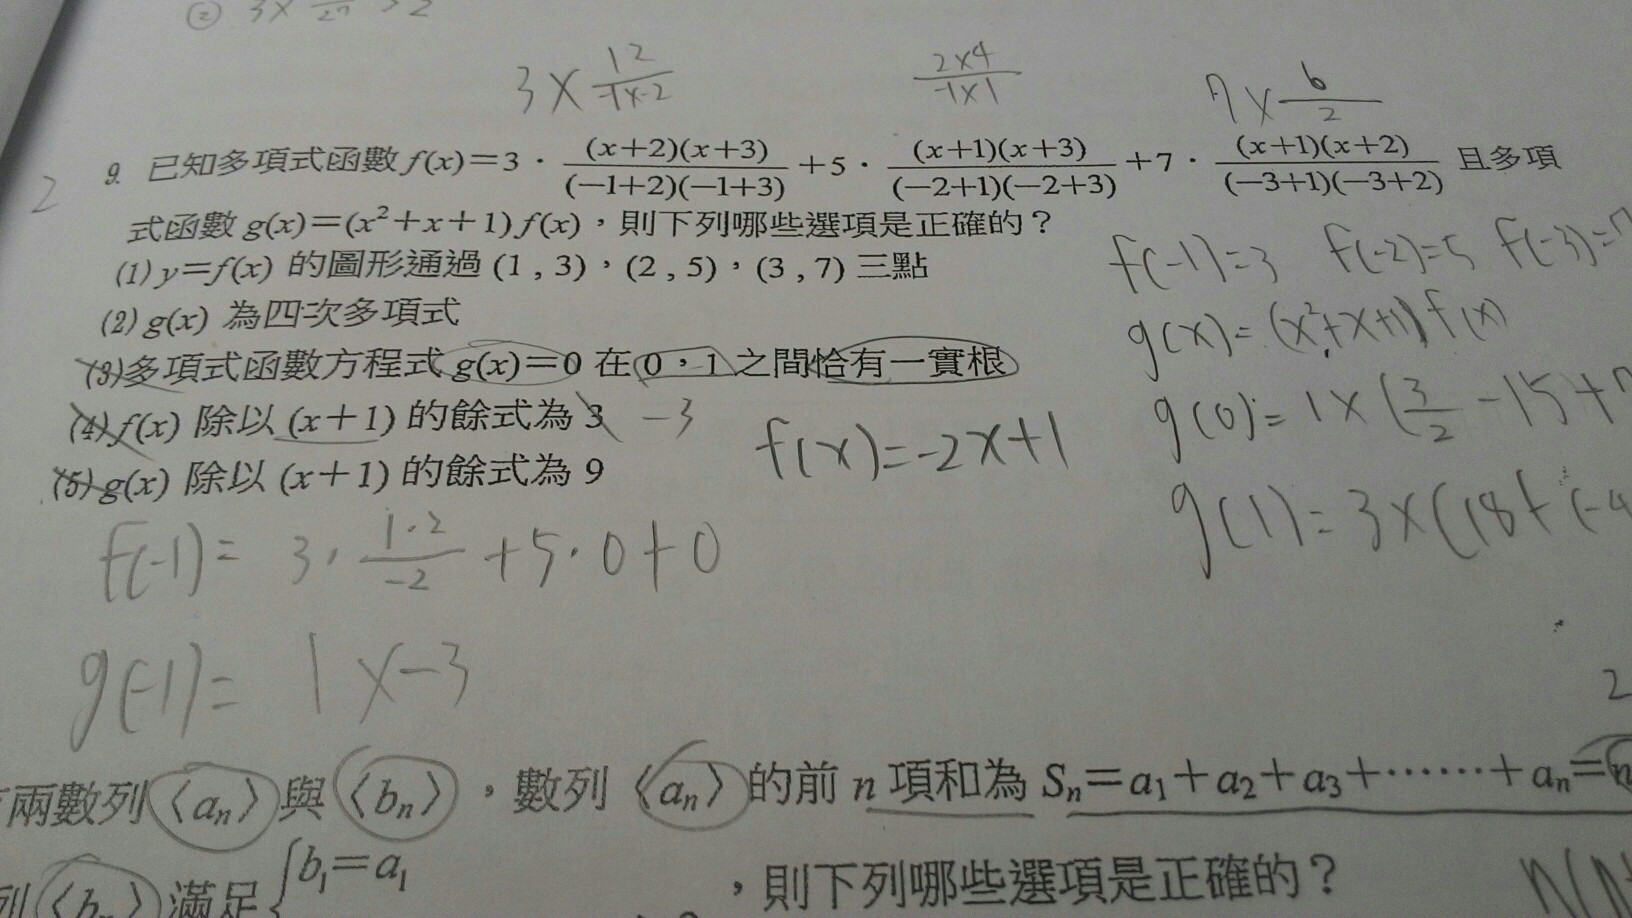 ② 3×
3 × 12/-1×-2
2×4/-1×1
7 × 6/2
2
9. 已知多項式函數 f(x)=3 · (x+2)(x+3)/(-1+2)(-1+3) +5 · (x+1)(x+3)/(-2+1)(-2+3) +7 · (x+1)(x+2)/(-3+1)(-3+2) 且多項
式函數 g(x)=(x²+x+1) f(x)，則下列哪些選項是正確的？
(1) y=f(x) 的圖形通過 (1 , 3)，(2 , 5)，(3 , 7) 三點
f(-1)=3 f(-2)=5 f(-3)=
(2) g(x) 為四次多項式
g(x)= (x²+x+1) f(x)
(3) 多項式函數方程式 g(x)=0 在 0，1 之間恰有一實根
(4) f(x) 除以 (x+1) 的餘式為 3 -3
g(0)= 1×(3/2 -15+
f(x)=-2x+1
(5) g(x) 除以 (x+1) 的餘式為 9
g(1)= 3×(18+(-4
f(-1)= 3 · 1·2/-2 +5·0+0
g(-1)= 1×-3
2
兩數列〈aₙ〉與〈bₙ〉，數列〈aₙ〉的前 n 項和為 Sₙ=a₁+a₂+a₃+⋯⋯+aₙ=
列〈bₙ〉滿足{b₁=a₁
，則下列哪些選項是正確的？